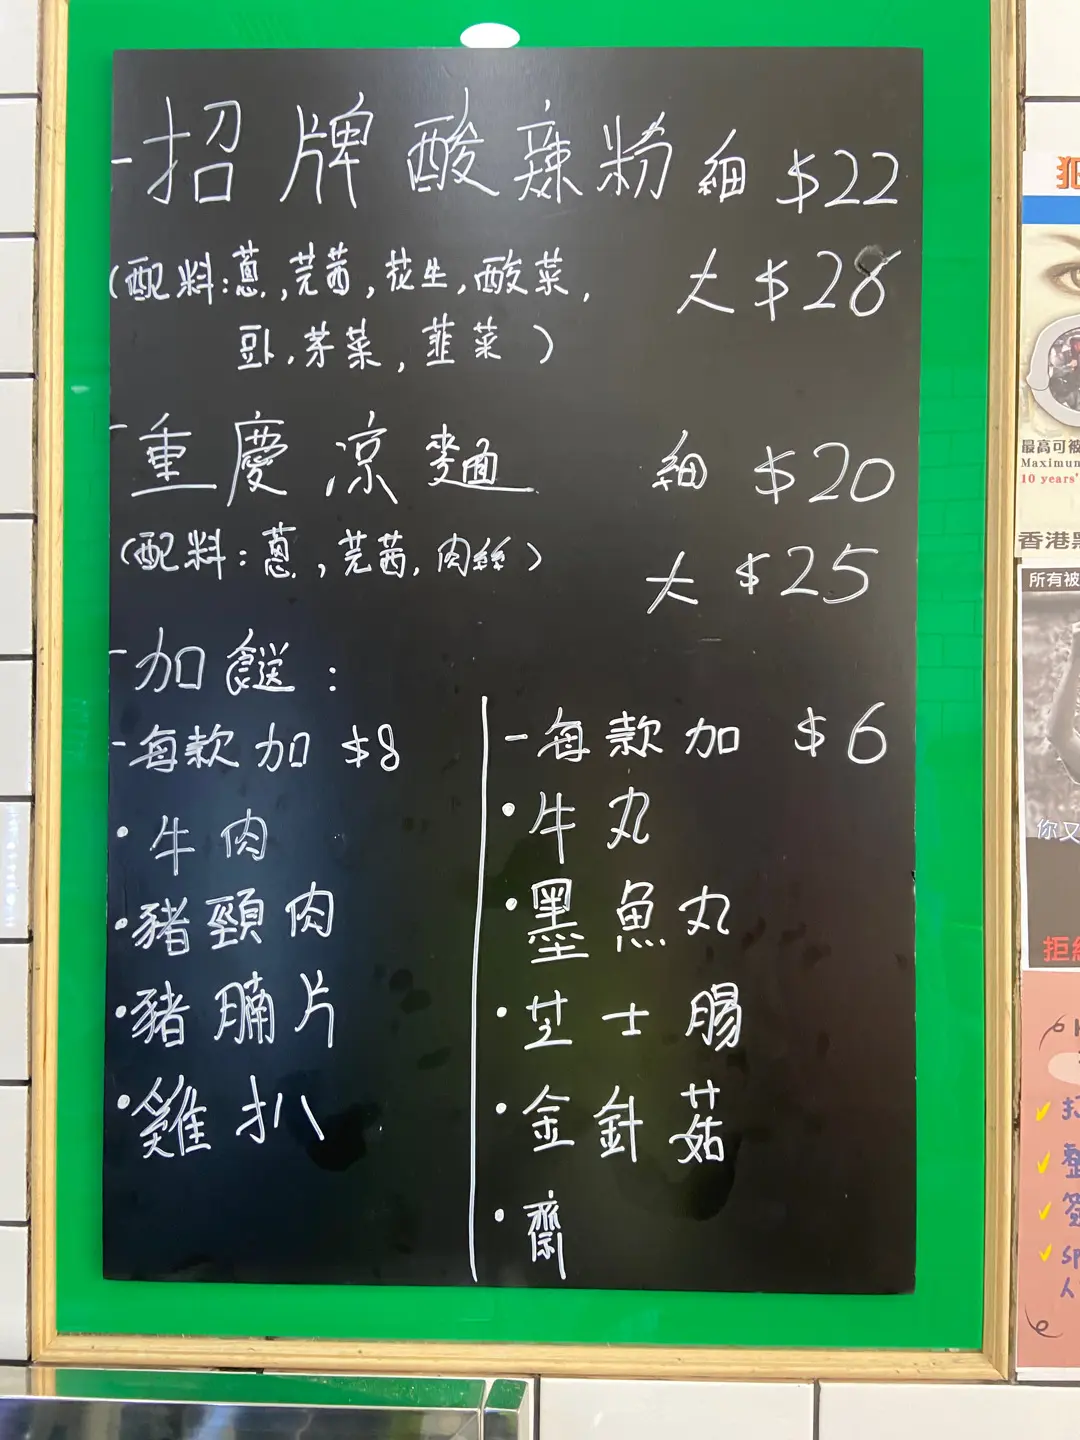 - 招牌酸辣粉 細 $22
(配料:蔥,芫茜,花生,酸菜, 大 $28
豆卜,芽菜,韮菜)
- 重慶凉麵 細 $20
(配料:蔥,芫茜,肉絲) 大 $25
- 加餸:
- 每款加 $8
• 牛肉
• 豬頸肉
• 豬腩片
• 雞扒
- 每款加 $6
• 牛丸
• 墨魚丸
• 芝士腸
• 金針菇
• 齋
最高可被
Maximum
10 years'
香港
所有被
你又